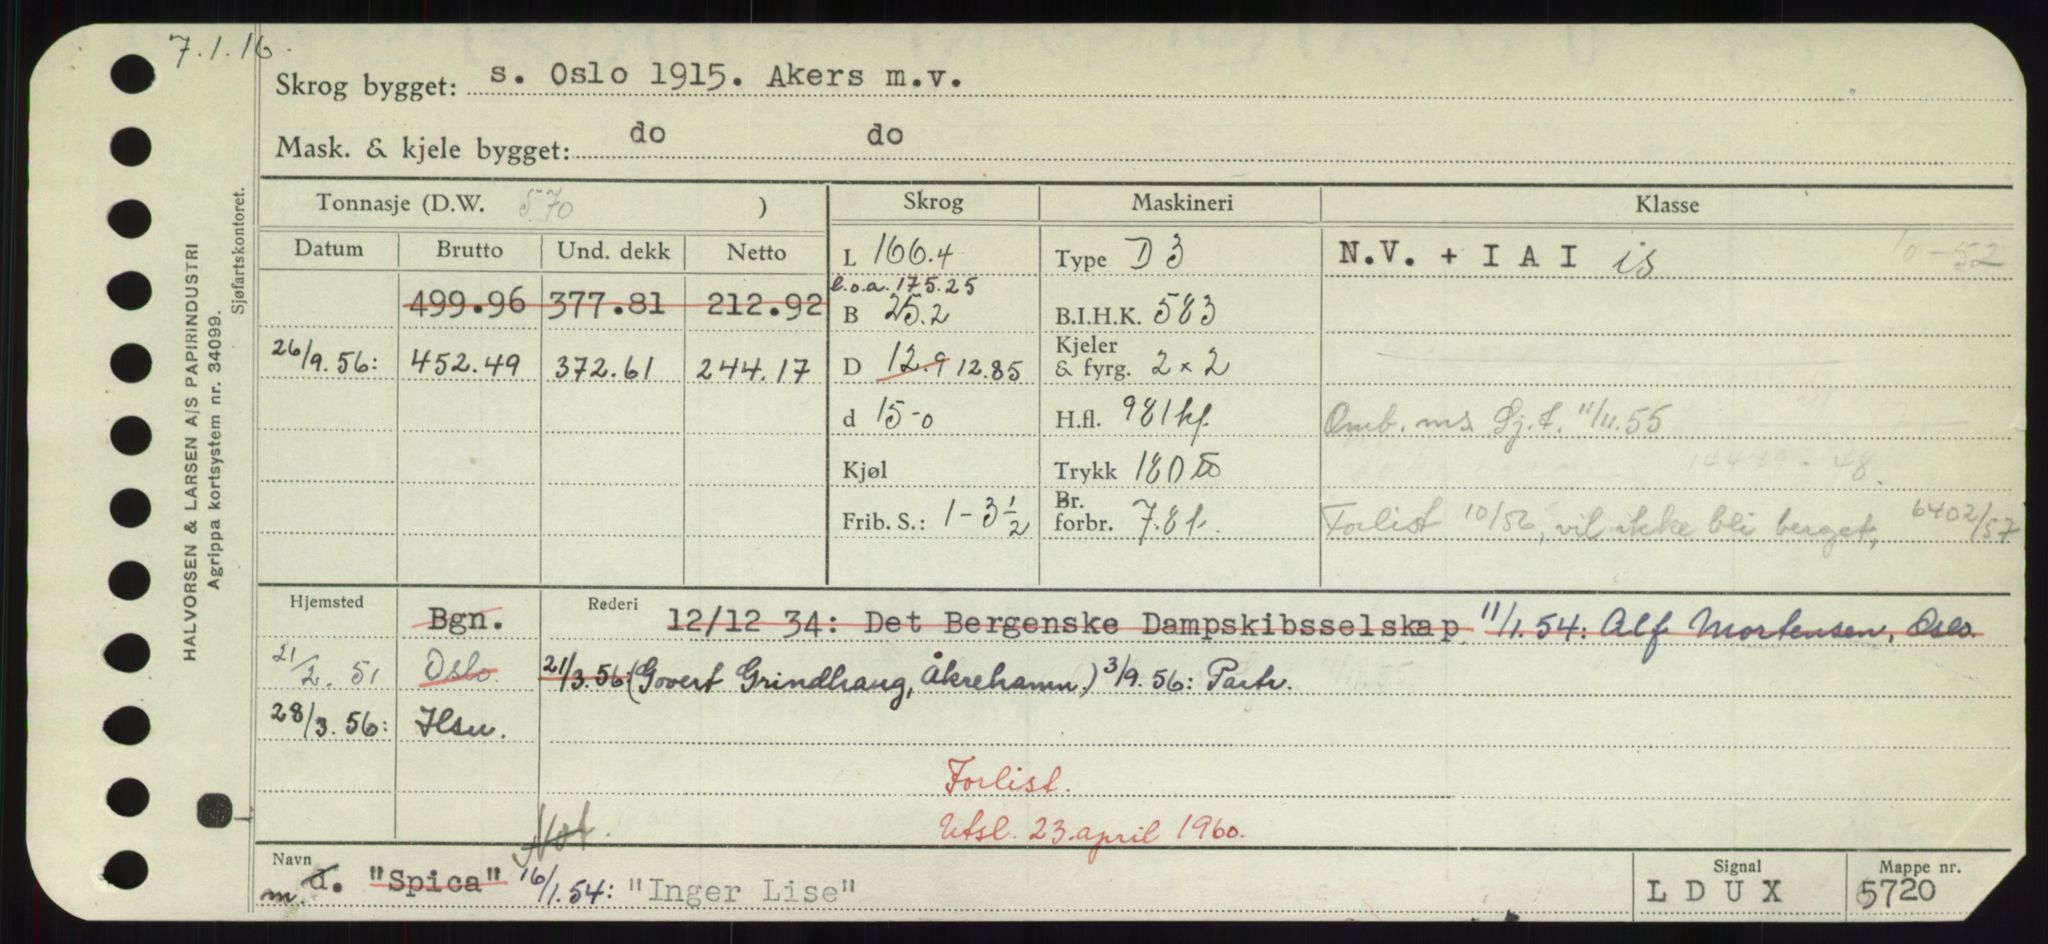 7.1.16.
Skrog bygget: s. Oslo 1915. Akers m.v.
Mask. & kjele bygget: do do
Tonnasje (D.W. 570 ) Skrog Maskineri Klasse
Datum Brutto Und. dekk Netto L 166.4 Type D 3 N.V. + I A I is 10-52
l.o.a. 175.25
499.96 377.81 212.92 B 25.2 B.I.H.K. 583
26/9.56: 452.49 372.61 244.17 D 12.9 12.85 Kjeler & fyrg. 2 x 2
d 15-0 H.fl. 981 kf. Omb. ms. Sj.f. 11/11.55
Kjøl Trykk 180
Frib. S.: 1-3 1/2 Br. forbr. 7.8 t. Forlist 10/56, vil ikke bli berget, 6402/57
Hjemsted Bgn. Rederi 12/12 34: Det Bergenske Dampskibsselskap 11/1.54: Alf Mortensen, Oslo.
21/2.51 Oslo 21/3.56 (Govert Grindhaug, Åkrehamn.) 3/9.56: Partr.
28/3.56: Hsu.
Forlist.
Utsl. 23. april 1960.
Navn m. d. "Spica" 16/1.54: "Inger Lise" Signal L D U X Mappe nr. 5720
HALVORSEN & LARSEN A/S PAPIRINDUSTRI
Agrippa kortsystem nr. 34099.
Sjøfartskontoret.